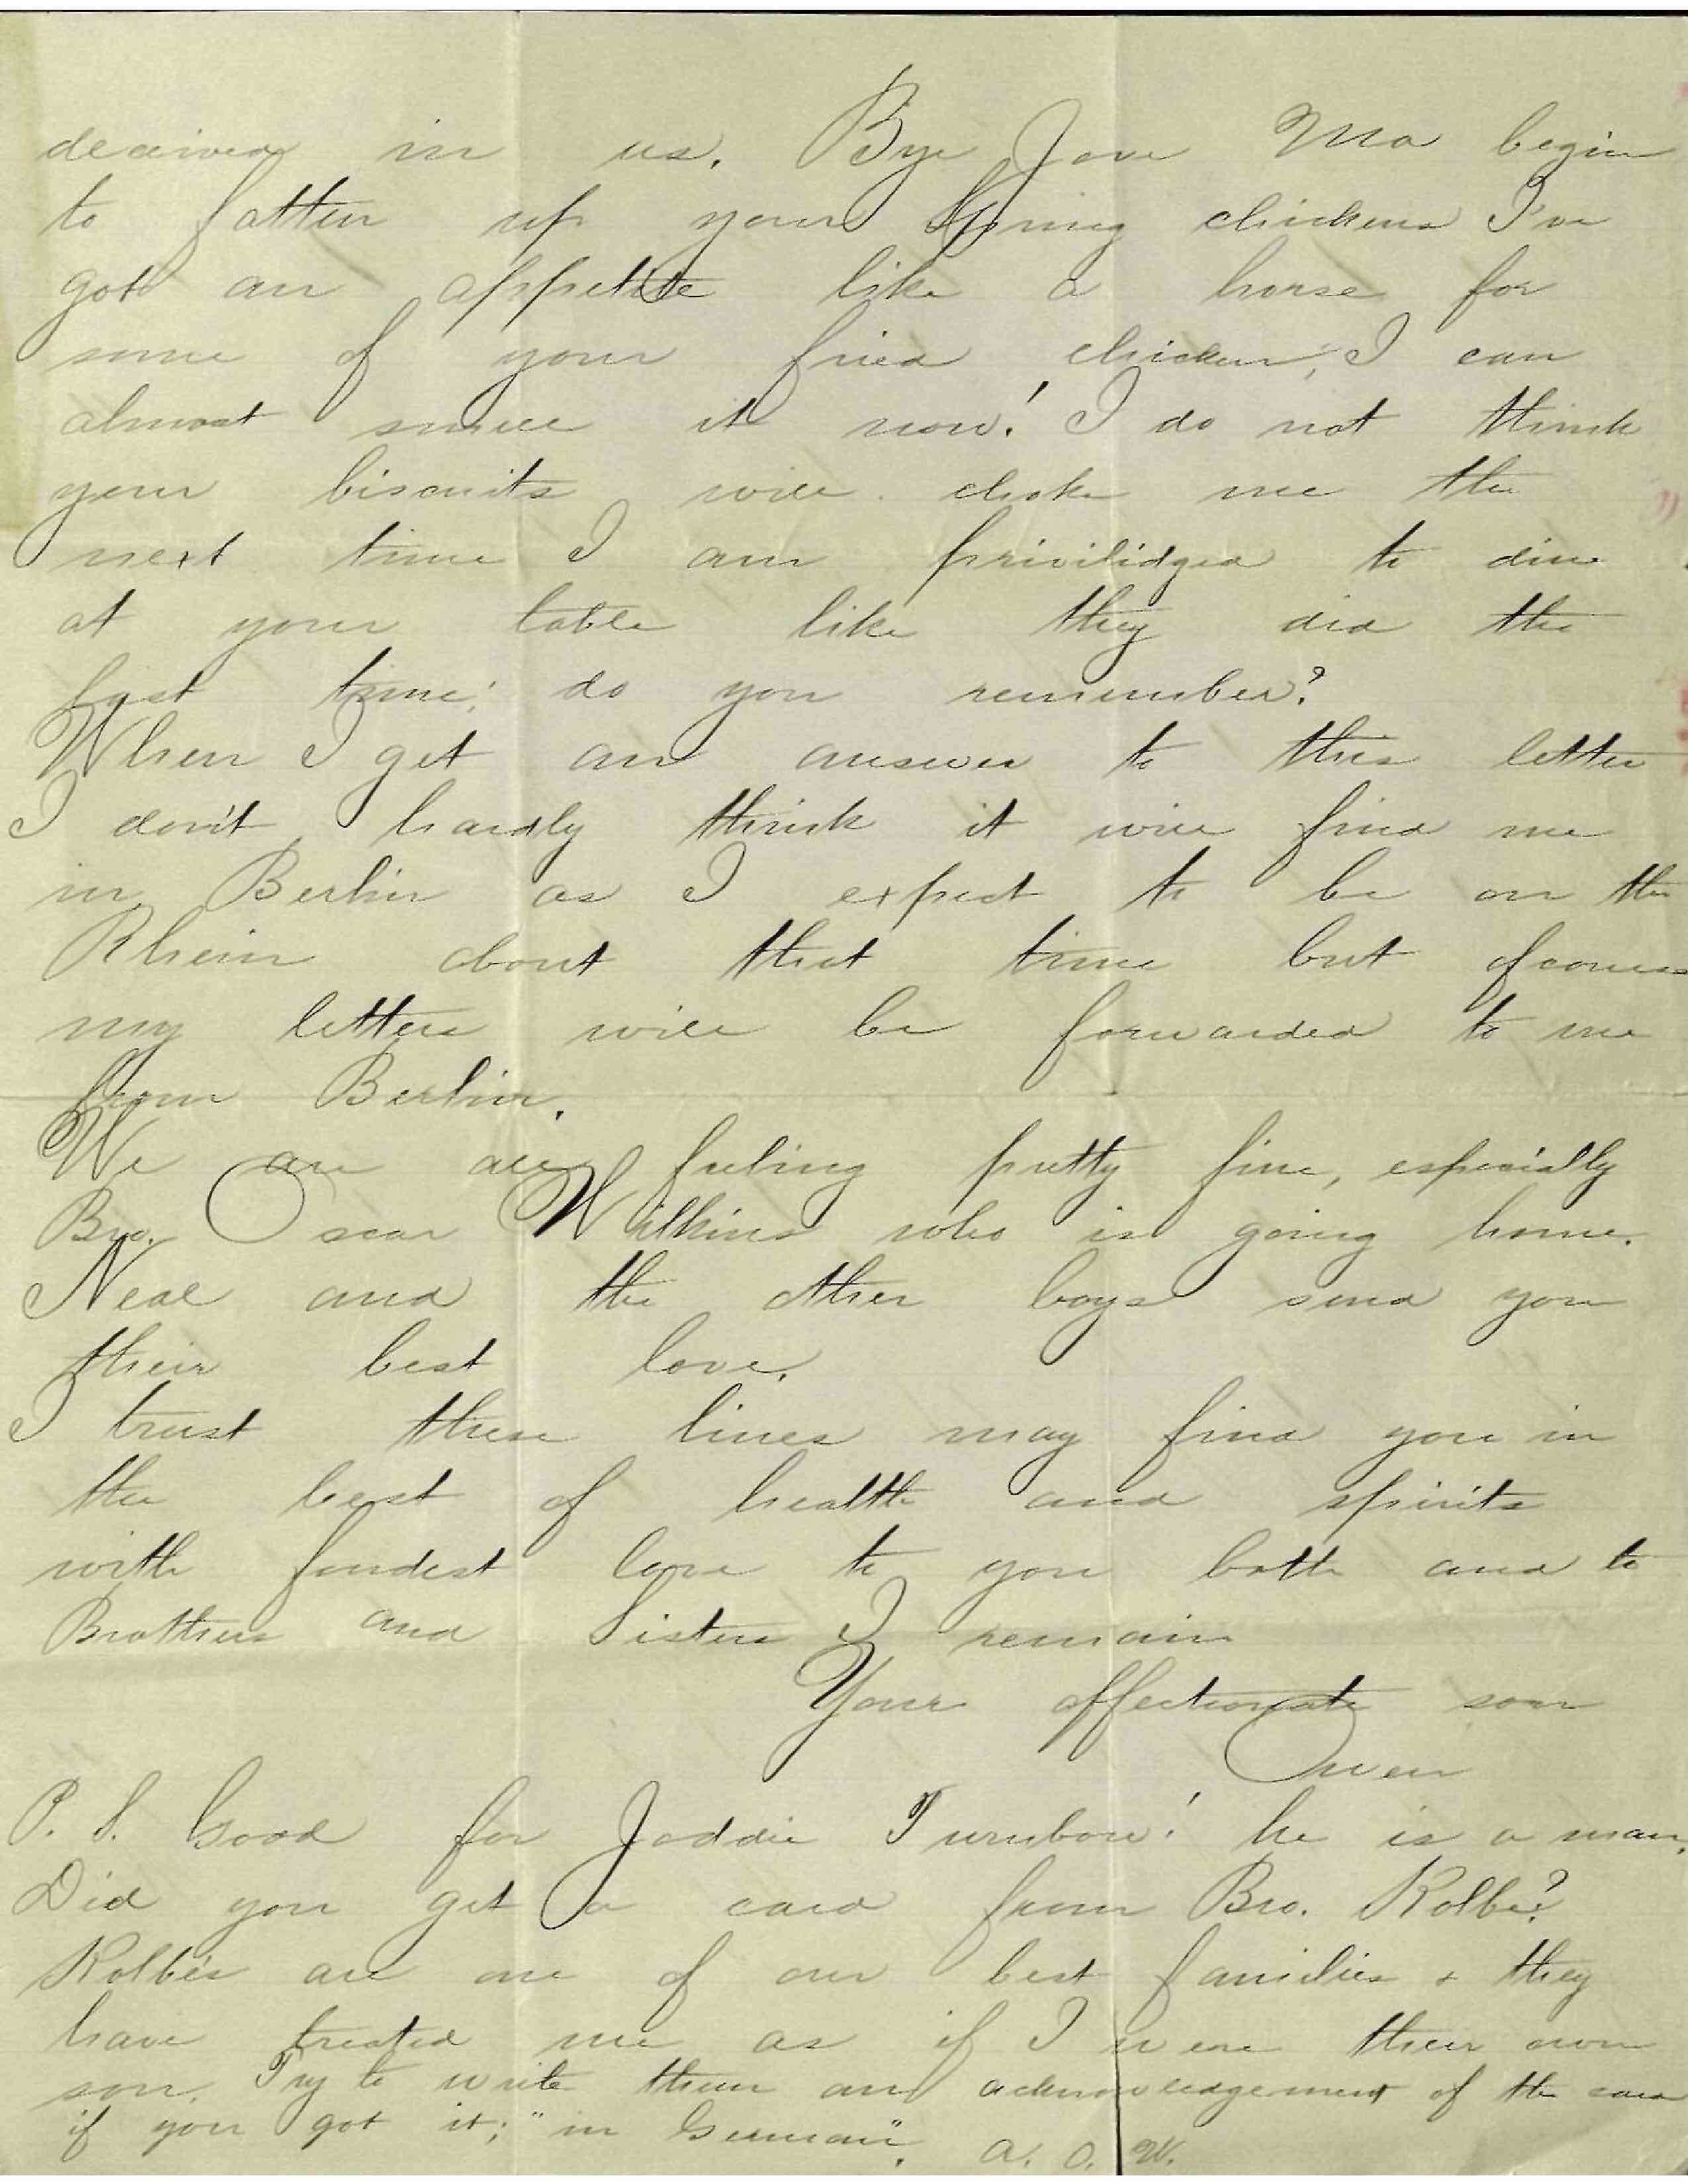 deceived in us. Bye Jove Ma begin
to fatten up your Spring chickens I've
got an appetite like a horse for
some of your fried chicken; I can
almost smell it now! I do not think
your biscuits will choke me the
next time I am privilidged to dine
at your table like they did the
last time; do you remember?
When I get an answer to this letter
I don't hardly think it will find me
in Berlin as I expect to be on the
Rhein about that time but of course
my letters will be forwarded to me
from Berlin.
We are all feeling pretty fine, especially
Bro. Oscar Wilkins who is going home.
Neal and the other boys send you
their best love.
I trust these lines may find you in
the best of health and spirits
with fondest love to you both and to
Brothers and Sisters I remain
Your affectionate son
Owen
P. S. Good for Joddie Turnbow! he is a man.
Did you get a card from Bro. Kolbe?
Kolbe's are one of our best families + they
have treated me as if I were their own
son. Try to write them an acknowledgement of the card
if you got it; "in German". A. O. W.